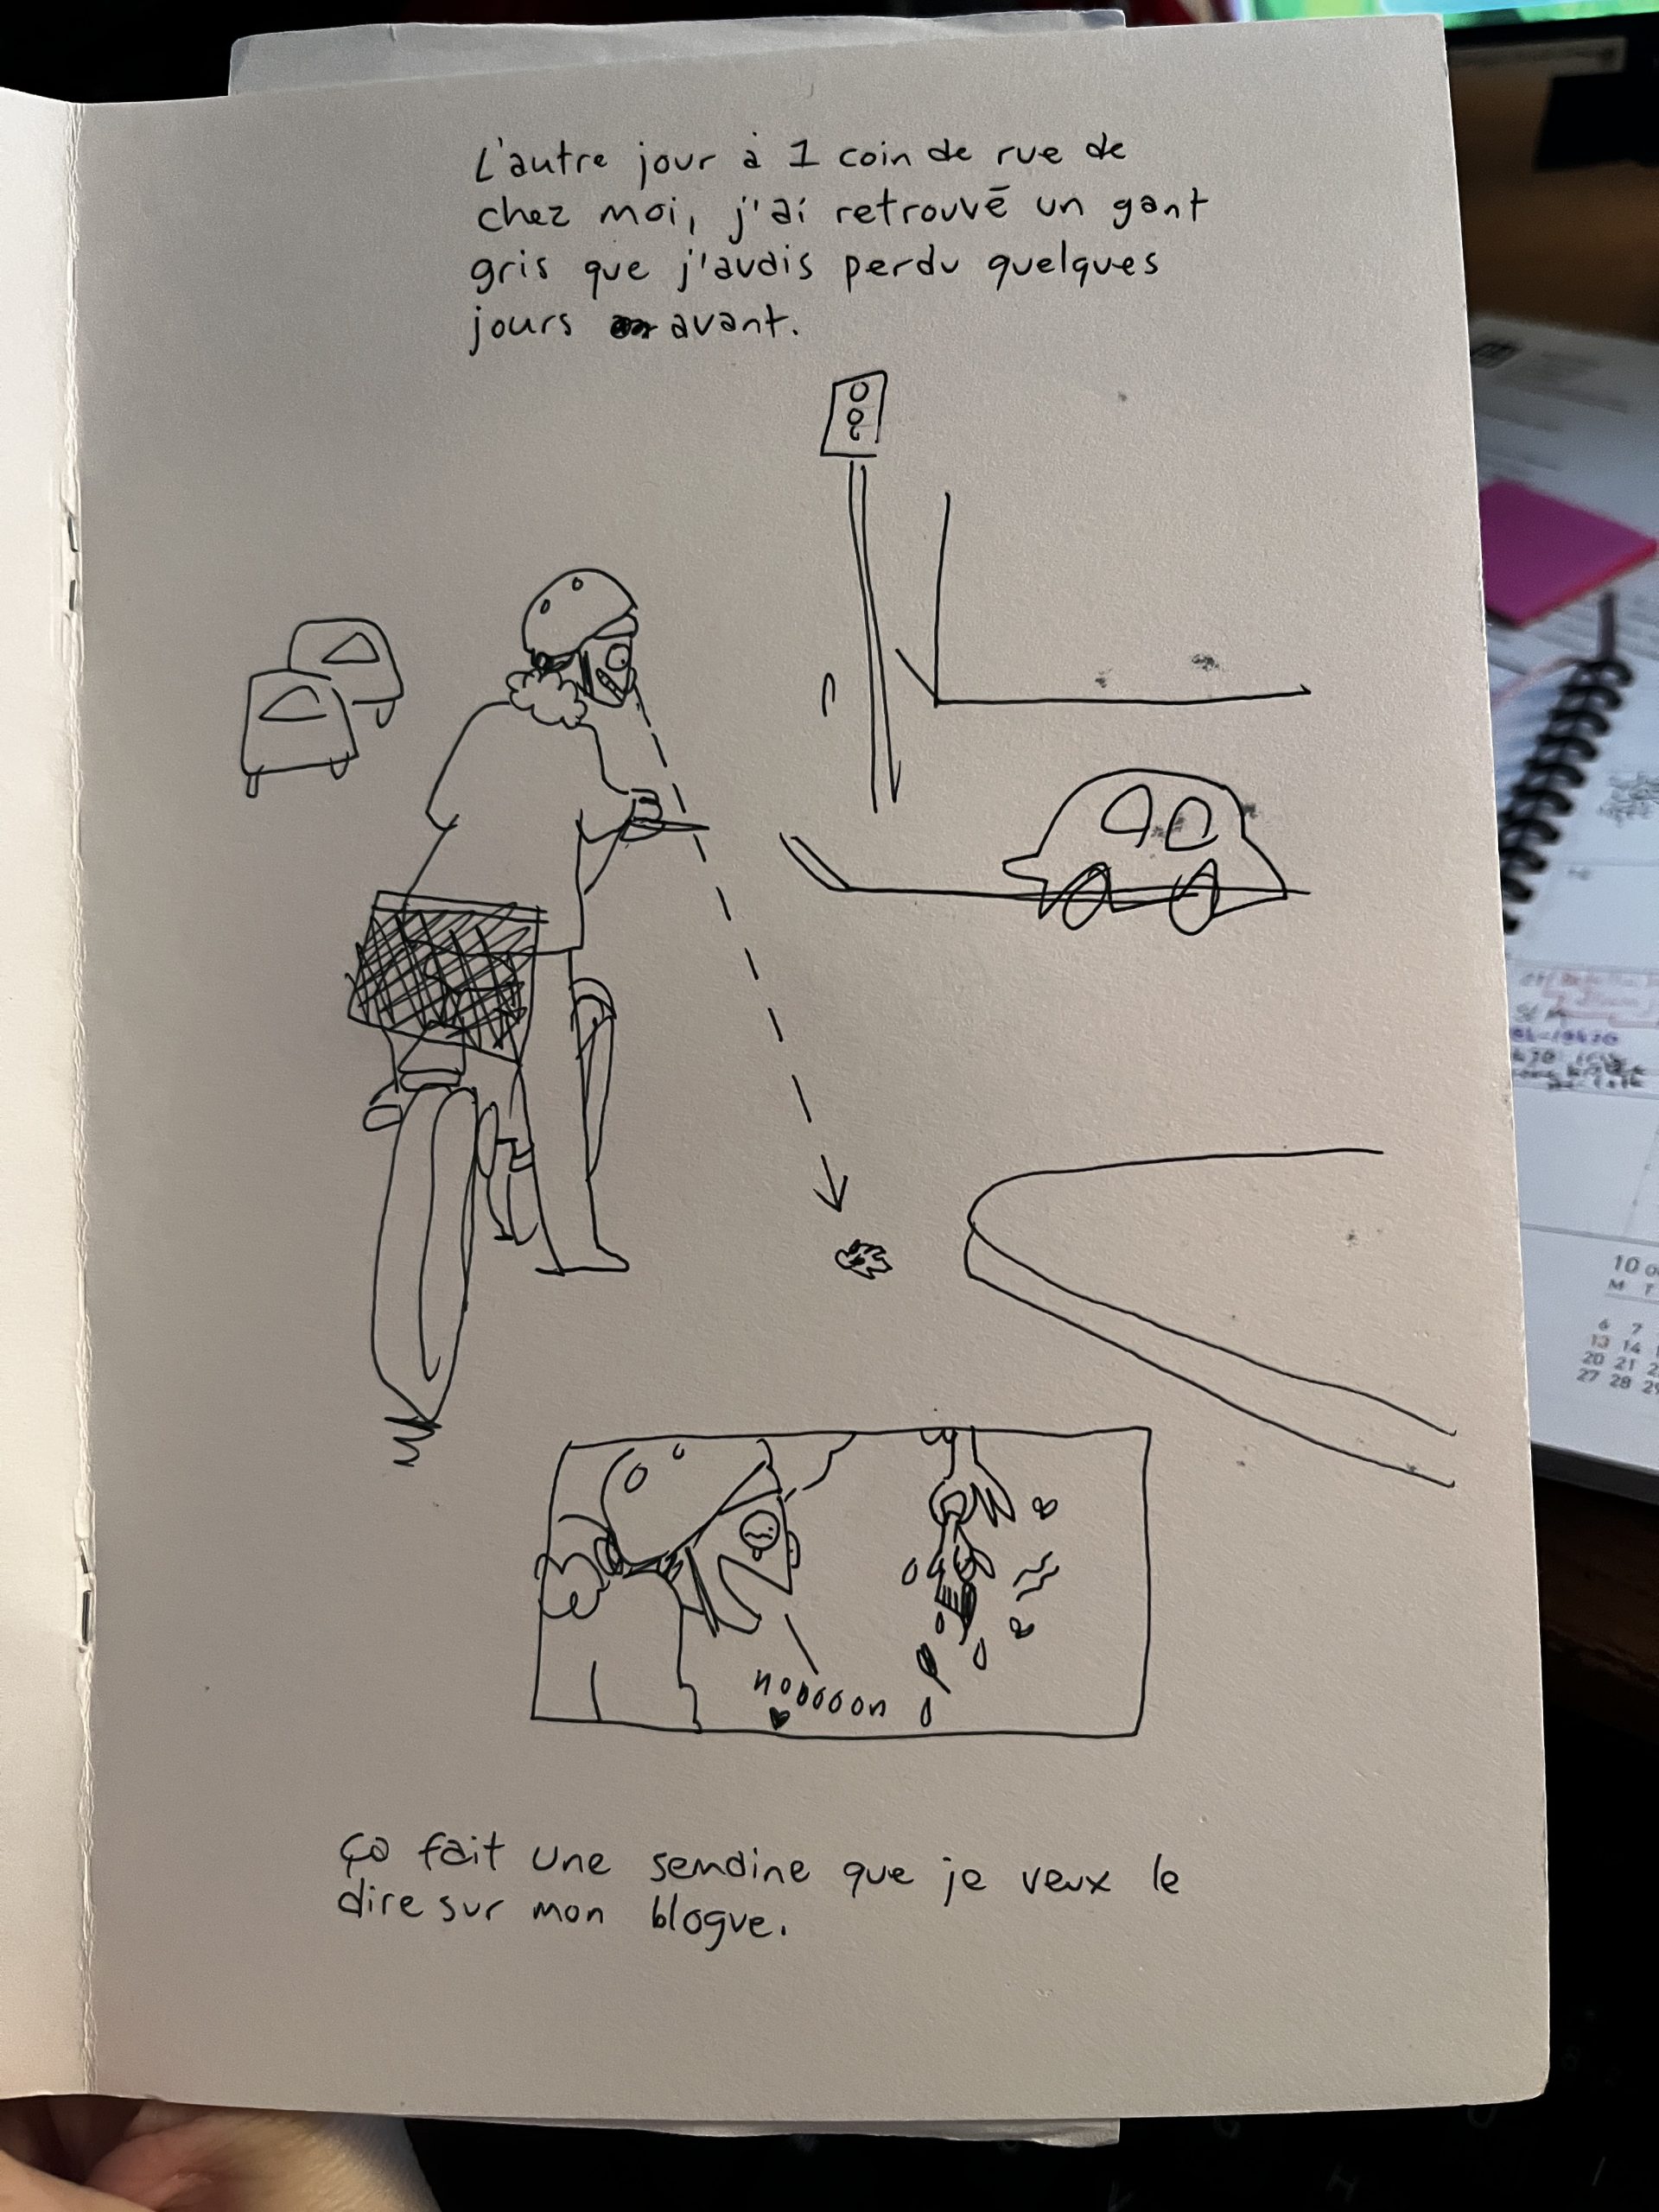 L'autre jour à 1 coin de rue de
chez moi, j'ai retrouvé un gant
gris que j'avais perdu quelques
jours avant.
nooooon
ça fait une semaine que je veux le
dire sur mon blogue.
10
M T
6 7
13 14
20 21
27 28 29